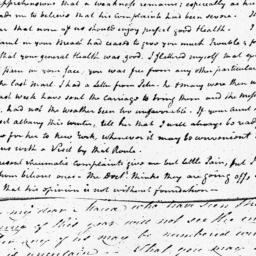 apprehensions that a weakness remains; especially as he
me to believe that his Complaints had been severe. I
that none of us should enjoy perfect good Health.
and in your Head had ceased to give you much Trouble &
that your general Health was good. I flattered myself that
pain in your face, you was free from any other particular
the last Mail I had a letter from Peter. he & Mary were then
next week have sent the Carriage to bring them and the
had not the weather been too unfavorable. If your Aunt
at Albany this winter, tell her that I will always be ready
for her to New York, whenever it may be convenient
us with a Visit by that Route.
rheumatic Complaints give me but little Pain, but I
from bilious ones. The Doct. thinks they are going off &
that his opinion is not without foundation—
my dear Maria who have seen the
of this year will not see the
any of us may be numbered
is uncertain. What you may